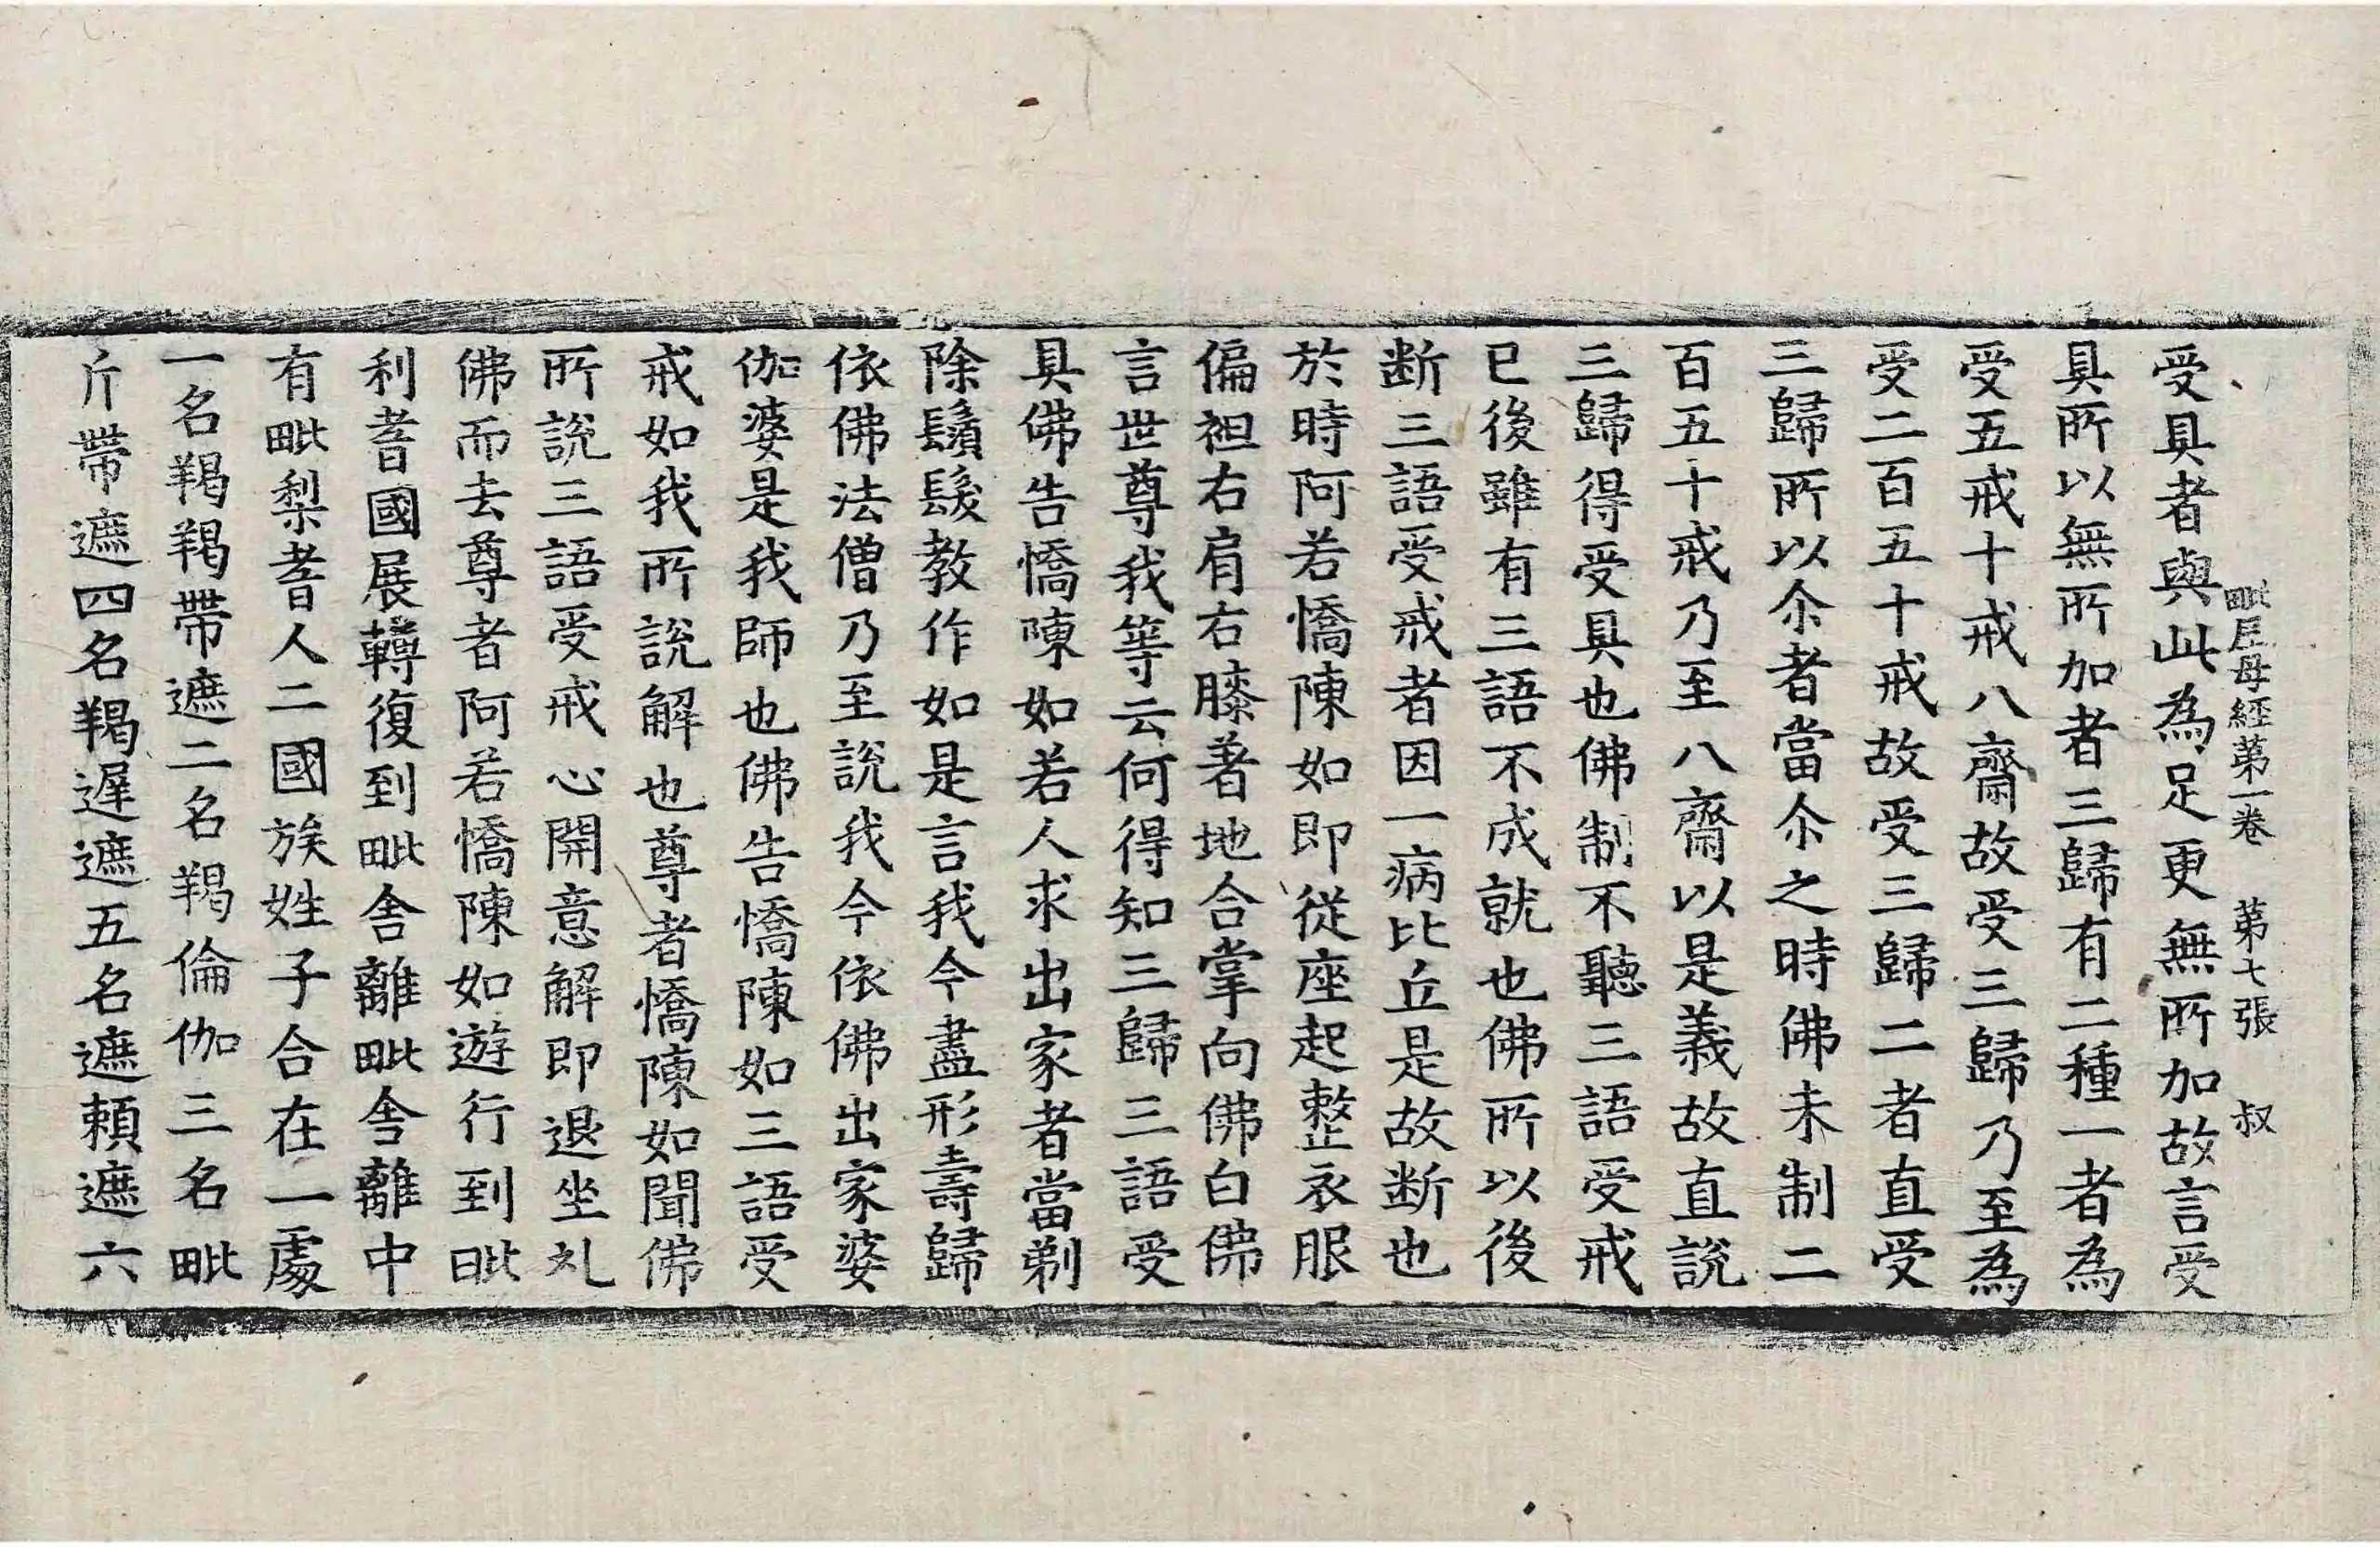 毗尼母經第一卷 第七張 叔
受具者與此為足更無所加故言受
具所以無所加者三歸有二種一者為
受五戒十戒八齋故受三歸乃至為
受二百五十戒故受三歸二者直受
三歸所以尒者當尒之時佛未制二
百五十戒乃至八齋以是義故直說
三歸得受具也佛制不聽三語受戒
已後雖有三語不成就也佛所以後
断三語受戒者因一病比丘是故断也
於時阿若憍陳如即從座起整衣服
偏袒右肩右膝著地合掌向佛白佛
言世尊我等云何得知三歸三語受
具佛告憍陳如若人求出家者當剃
除鬚髮教作如是言我今盡形壽歸
依佛法僧乃至說我今依佛出家婆
伽婆是我師也佛告憍陳如三語受
戒如我所說解也尊者憍陳如聞佛
所說三語受戒心開意解即退坐礼
佛而去尊者阿若憍陳如遊行到毗
利耆國展轉復到毗舍離毗舍離中
有毗梨耆人二國族姓子合在一處
一名羯羯帶遮二名羯倫伽三名毗
斤帶遮四名羯遲遮五名遮頼遮六